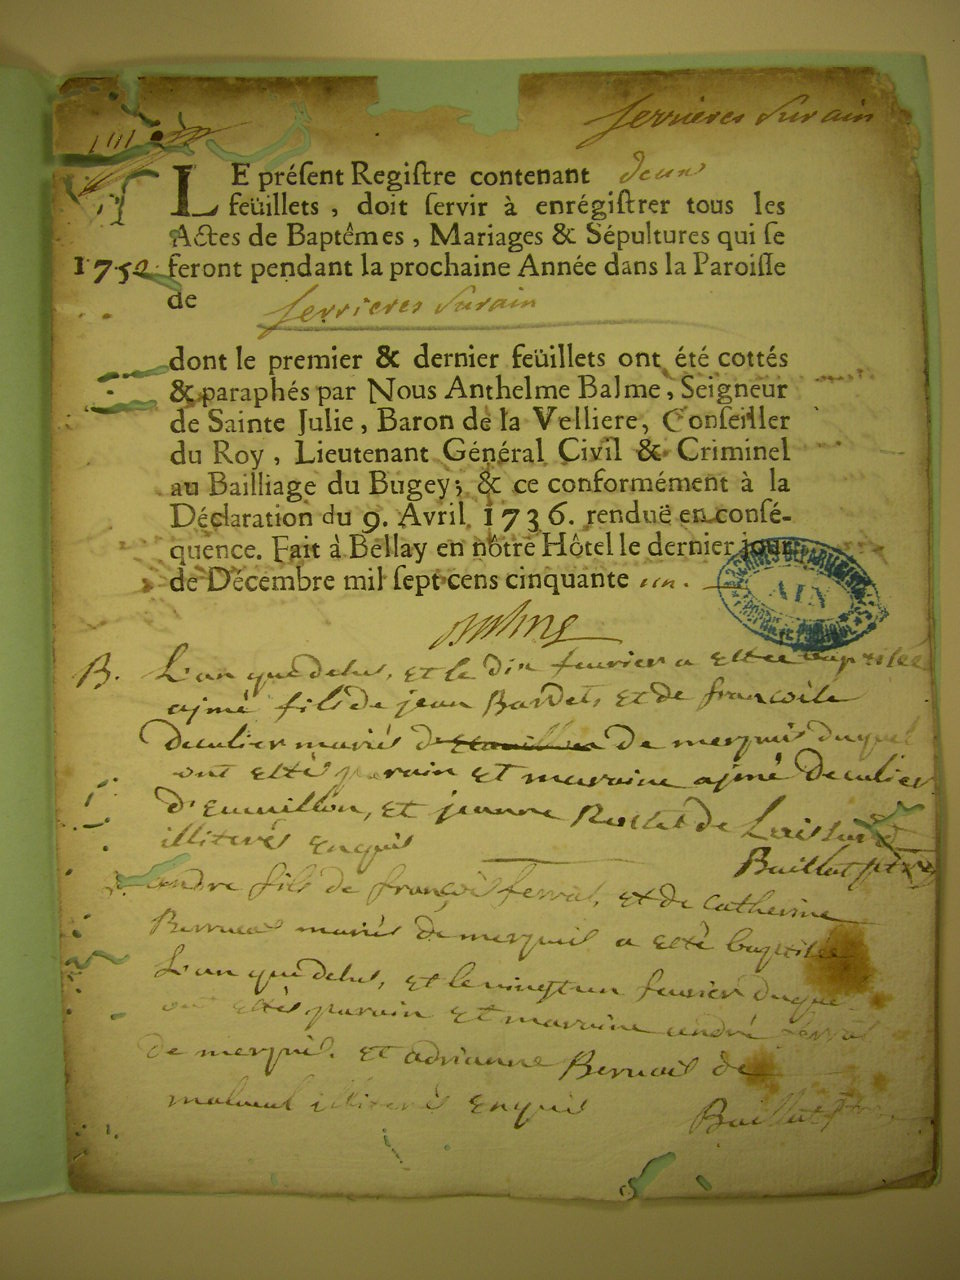 serrieres Sur ain
LE présent Registre contenant deux
feüillets, doit servir à enrégistrer tous les
Actes de Baptêmes, Mariages & Sépultures qui se
1752 feront pendant la prochaine Année dans la Paroisse
de serrieres Sur ain
dont le premier & dernier feüillets ont été cottés
& paraphés par Nous Anthelme Balme, Seigneur
de Sainte Julie, Baron de la Velliere, Conseiller
du Roy, Lieutenant Général Civil & Criminel
au Bailliage du Bugey; & ce conformément à la
Déclaration du 9. Avril 1736. renduë en consé-
quence. Fait à Bellay en nôtre Hôtel le dernier jour
de Décembre mil sept cens cinquante un.
ARCHIVES DÉPARTEMENTALES AIN
Balme
B. L'an que delus, et le dix feurier a esté baptisée
ajmé fils de jean Bardet et de francoise
deculier mariés de merpuis duquel
ont estés parain et maraine ajmé deculier
d'euuillon, et jeanne de
illiterés enquis
Baillat ptre
andre fils de françois ferrat, et de catherine
mariés de merpuis a esté baptisée
L'an que delus, et le uingt un feurier duquel
ont estés parain et maraine andré ferrat
de merpuis. et adrianne de
illiterés enquis
Baillat ptre